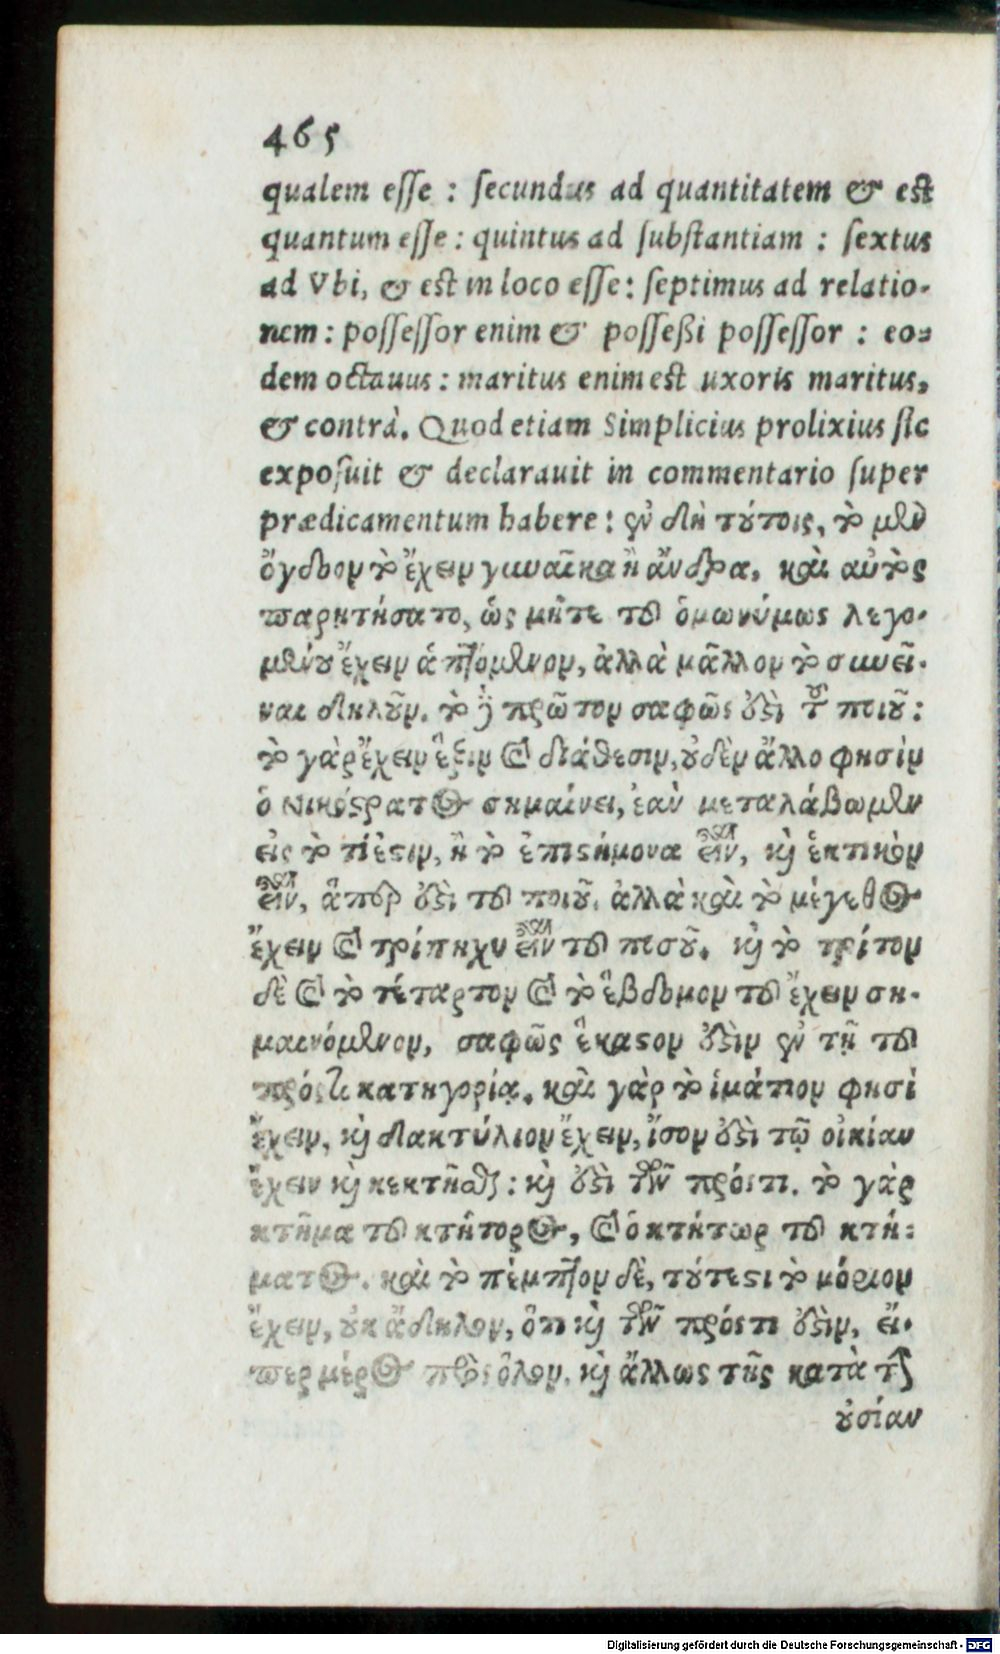 465
qualem esse : secundus ad quantitatem & est
quantum esse : quintus ad substantiam : sextus
ad Vbi, & est in loco esse : septimus ad relatio-
nem : possessor enim & possessi possessor : eo-
dem octauus : maritus enim est uxoris maritus,
& contrà. Quod etiam Simplicius prolixius sic
exposuit & declarauit in commentario super
prædicamentum habere : ἐν δὴ τούτοις, τὸ μὲν
ὄγδοον τὸ ἔχειν γυναῖκα ἢ ἄνδρα, καὶ αὐτὸς
παρῃτήσατο, ὡς μήτε τοῦ ὁμωνύμως λεγο-
μένου ἔχειν ἁπτόμενον, ἀλλὰ μᾶλλον τὸ συνεῖ-
ναι δηλοῦν. τὸ δὲ πρῶτον σαφῶς ἐστὶ τοῦ ποιοῦ :
τὸ γὰρ ἔχειν ἕξιν καὶ διάθεσιν, οὐδὲν ἄλλο φησὶν
ὁ Νικόστρατος σημαίνει, ἐὰν μεταλάβωμεν
εἰς τὸ τί ἐστιν, ἢ τὸ ἐπιστήμονα εἶναι, καὶ ἑκτικὸν
εἶναι, ἅπερ ἐστὶ τοῦ ποιοῦ. ἀλλὰ καὶ τὸ μέγεθος
ἔχειν καὶ τρίπηχυ εἶναι τοῦ ποσοῦ. καὶ τὸ τρίτον
δὲ καὶ τὸ τέταρτον καὶ τὸ ἕβδομον τοῦ ἔχειν ση-
μαινόμενον, σαφῶς ἕκαστον ἐστὶν ἐν τῇ τοῦ
πρός τι κατηγορίᾳ. καὶ γὰρ τὸ ἱμάτιον φησὶ
ἔχειν, καὶ δακτύλιον ἔχειν, ἴσον ἐστὶ τῷ οἰκίαν
ἔχειν καὶ κεκτῆσθαι : καὶ ἐστὶ τῶν πρός τι. τὸ γὰρ
κτῆμα τοῦ κτήτορος, καὶ ὁ κτήτωρ τοῦ κτή-
ματος. καὶ τὸ πέμπτον δὲ, τούτεστι τὸ μόριον
ἔχειν, οὐκ ἄδηλον, ὅτι καὶ τῶν πρός τι ἐστὶν, εἴ-
περ μέρος πρὸς ὅλον. καὶ ἄλλως τῆς κατὰ τὴν
οὐσίαν
Digitalisierung gefördert durch die Deutsche Forschungsgemeinschaft - DFG